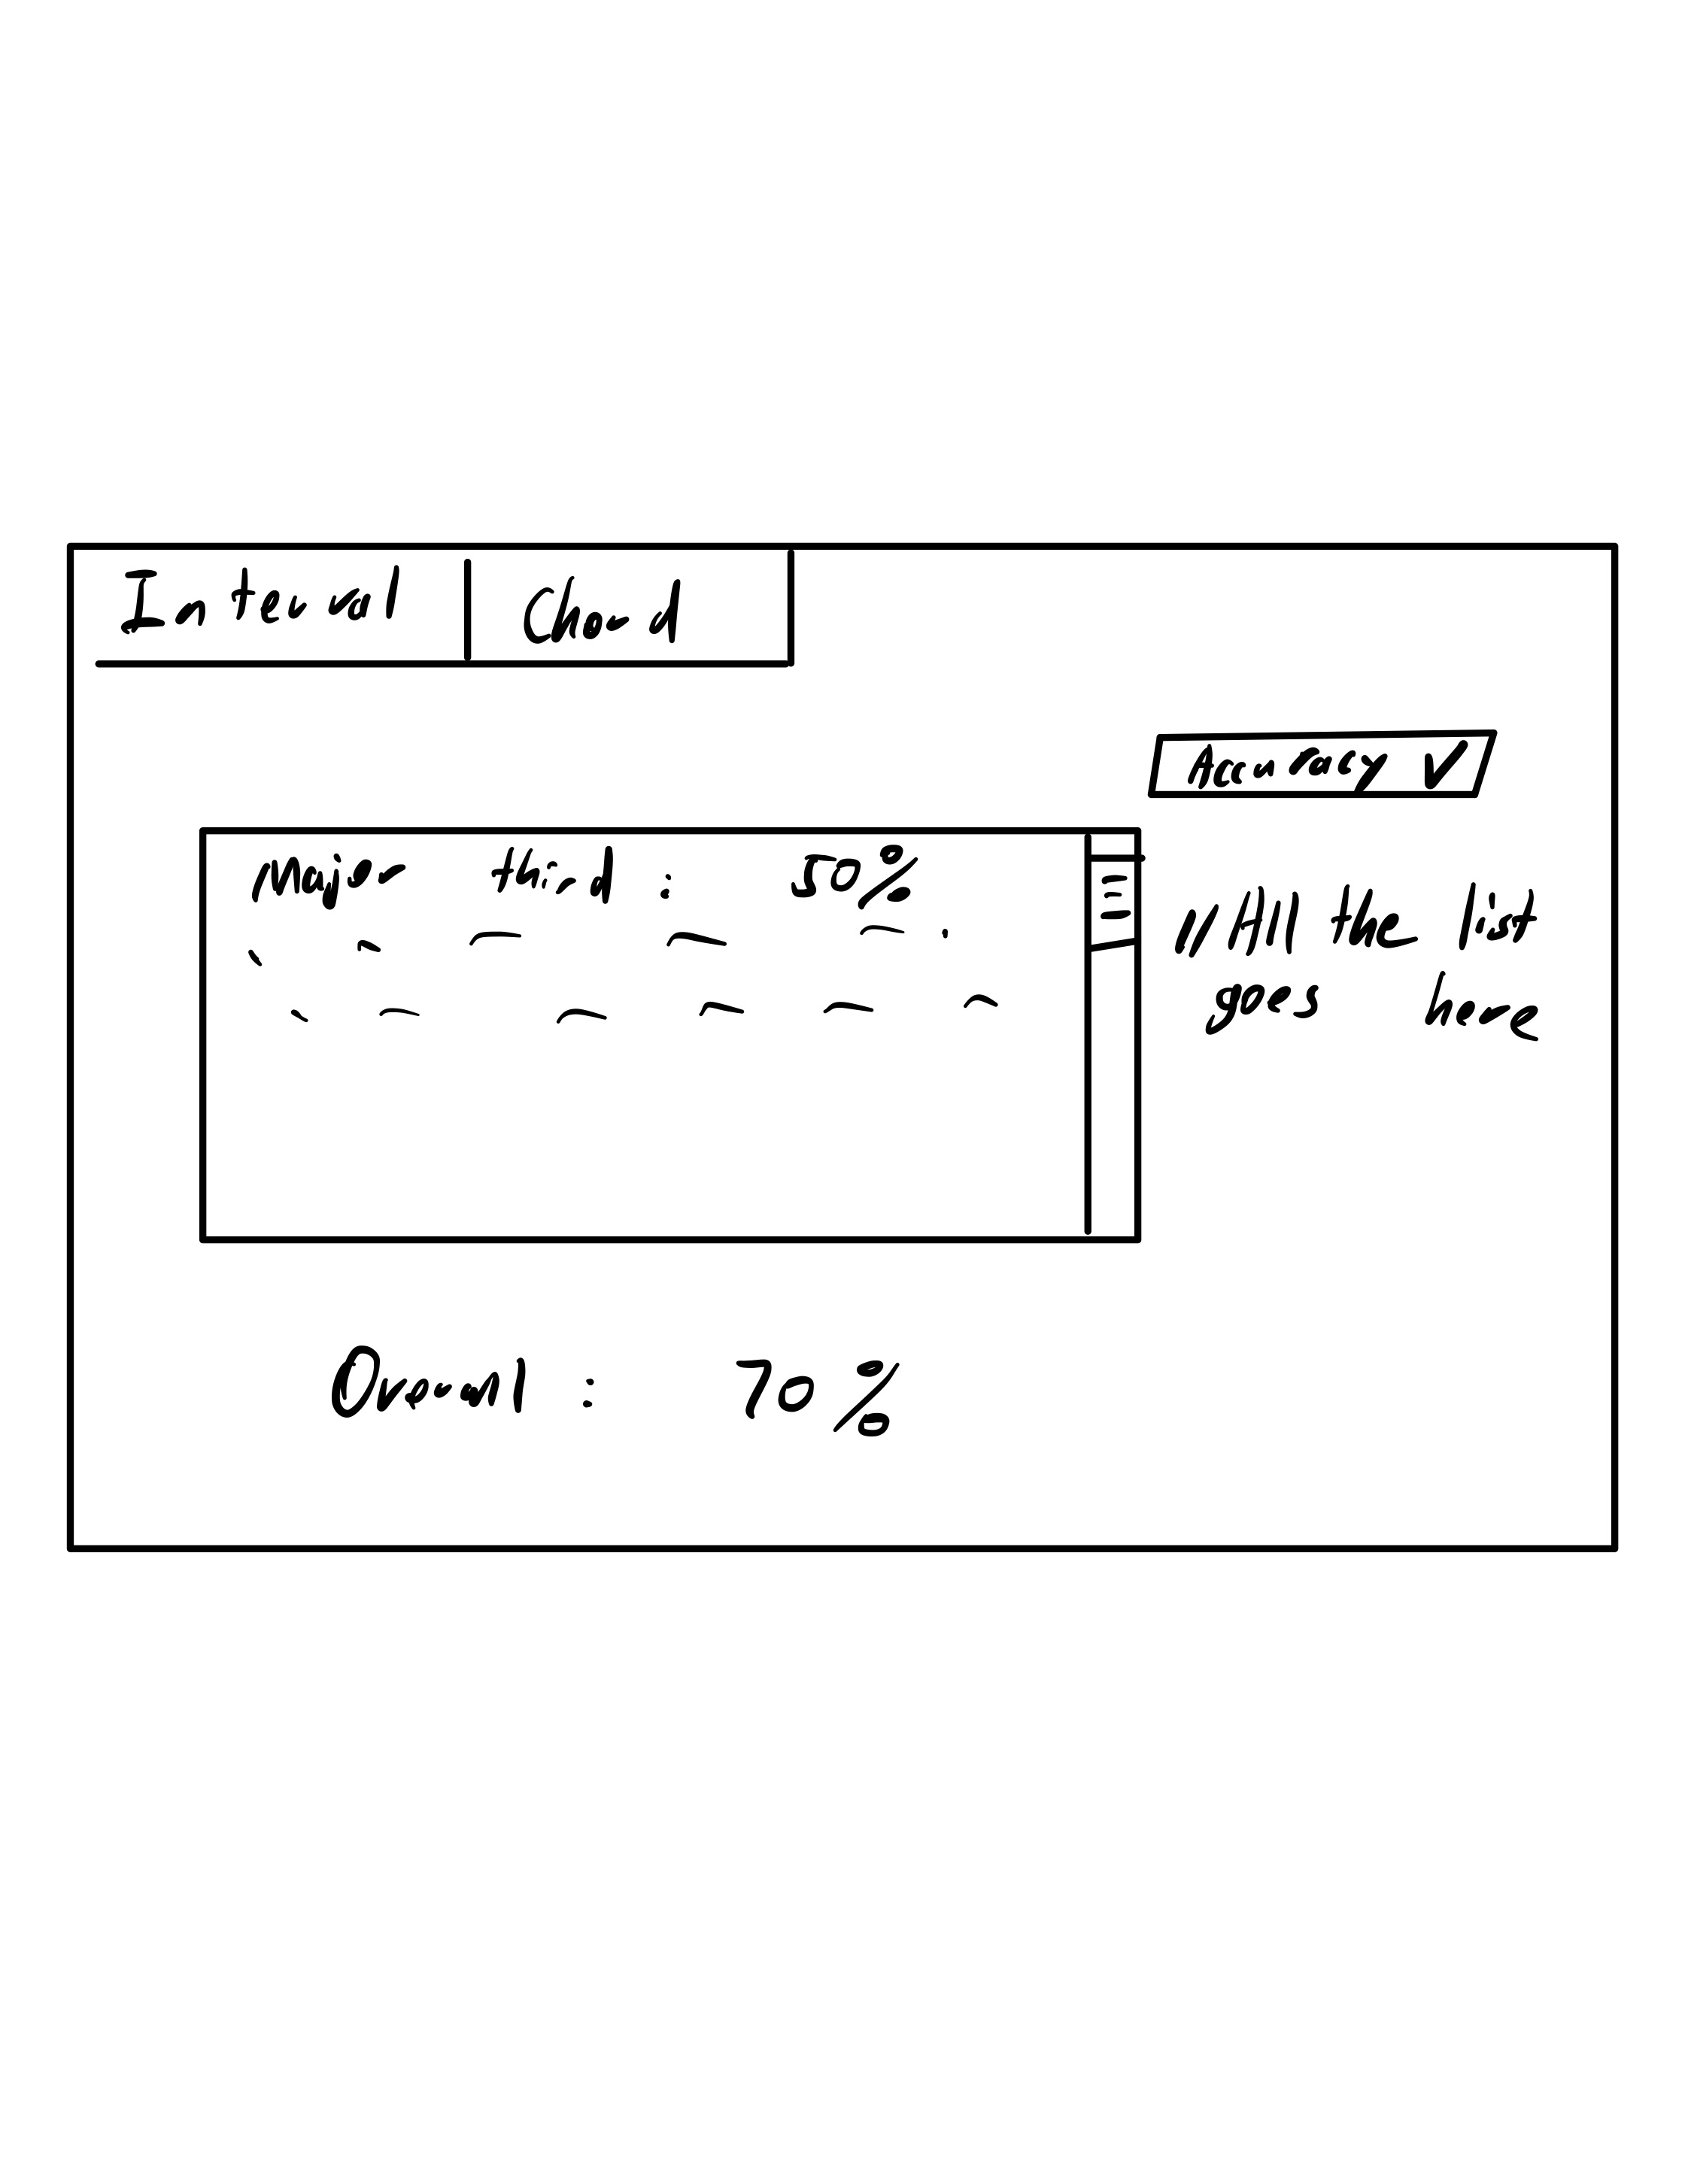 Interval
Chord
Accuracy
Major third : 50%
// All the list
goes here
Overall : 70%